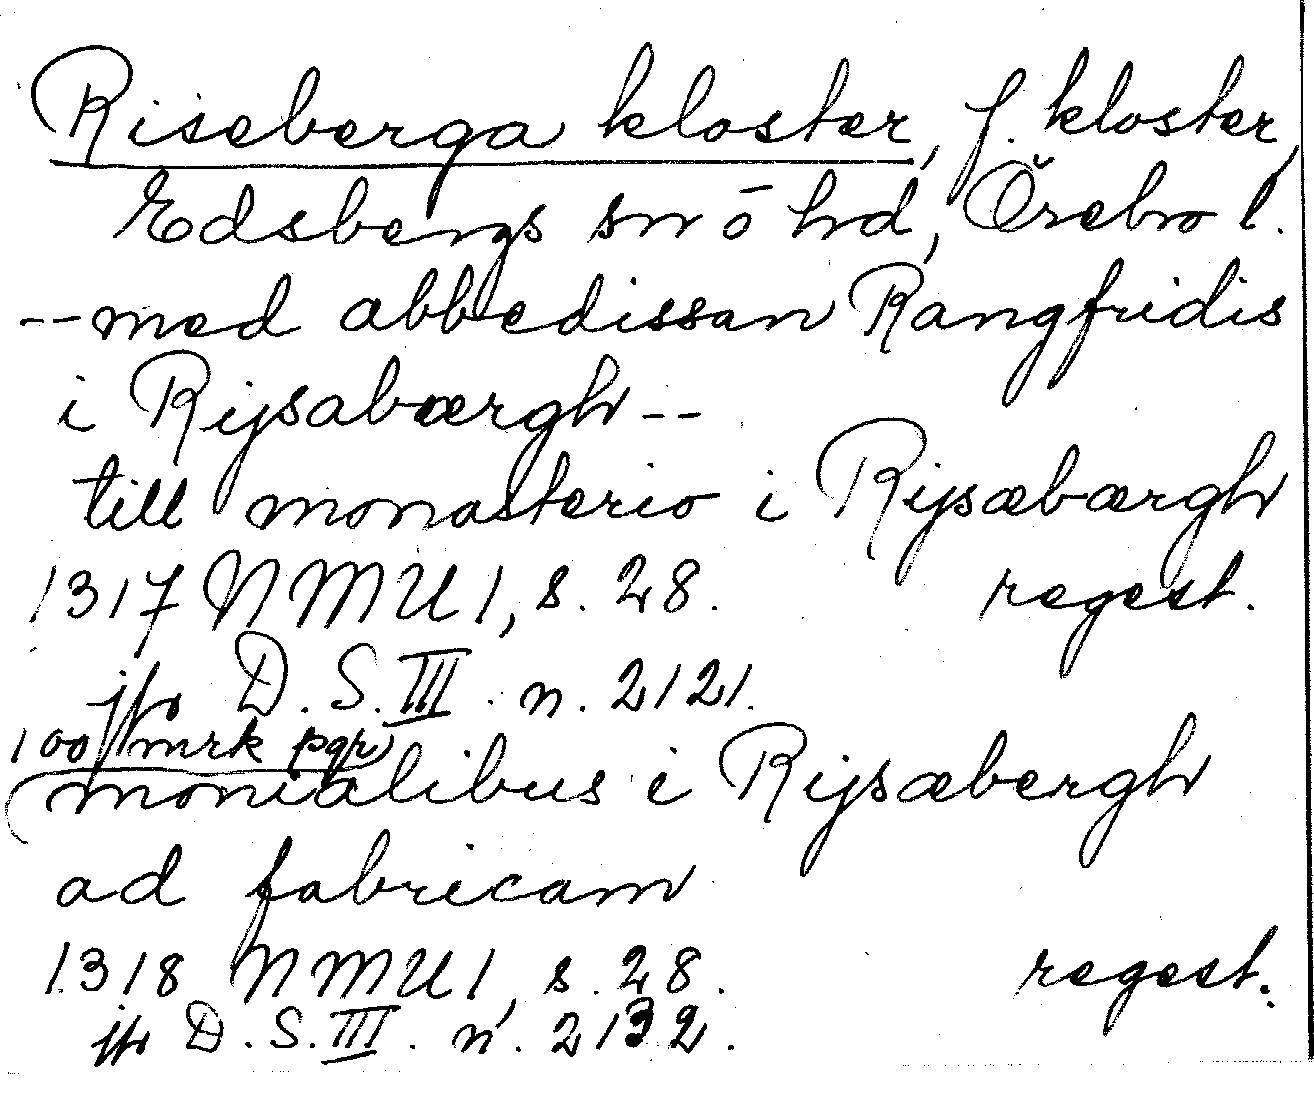 Riseberga kloster, f. kloster,
Edsbergs sn ō hd, Örebro l.
-- med abbedissan Rangfridis
i Rijsabærgh --
till monasterio i Rijsæbærgh
1317 NMU 1, s. 28. regest.
jfr D. S. III. n. 2121.
100 mrk pgr
monialibus i Rijsæbergh
ad fabricam
1318 NMU 1, s. 28. regest.
jfr D. S. III. n. 2132.